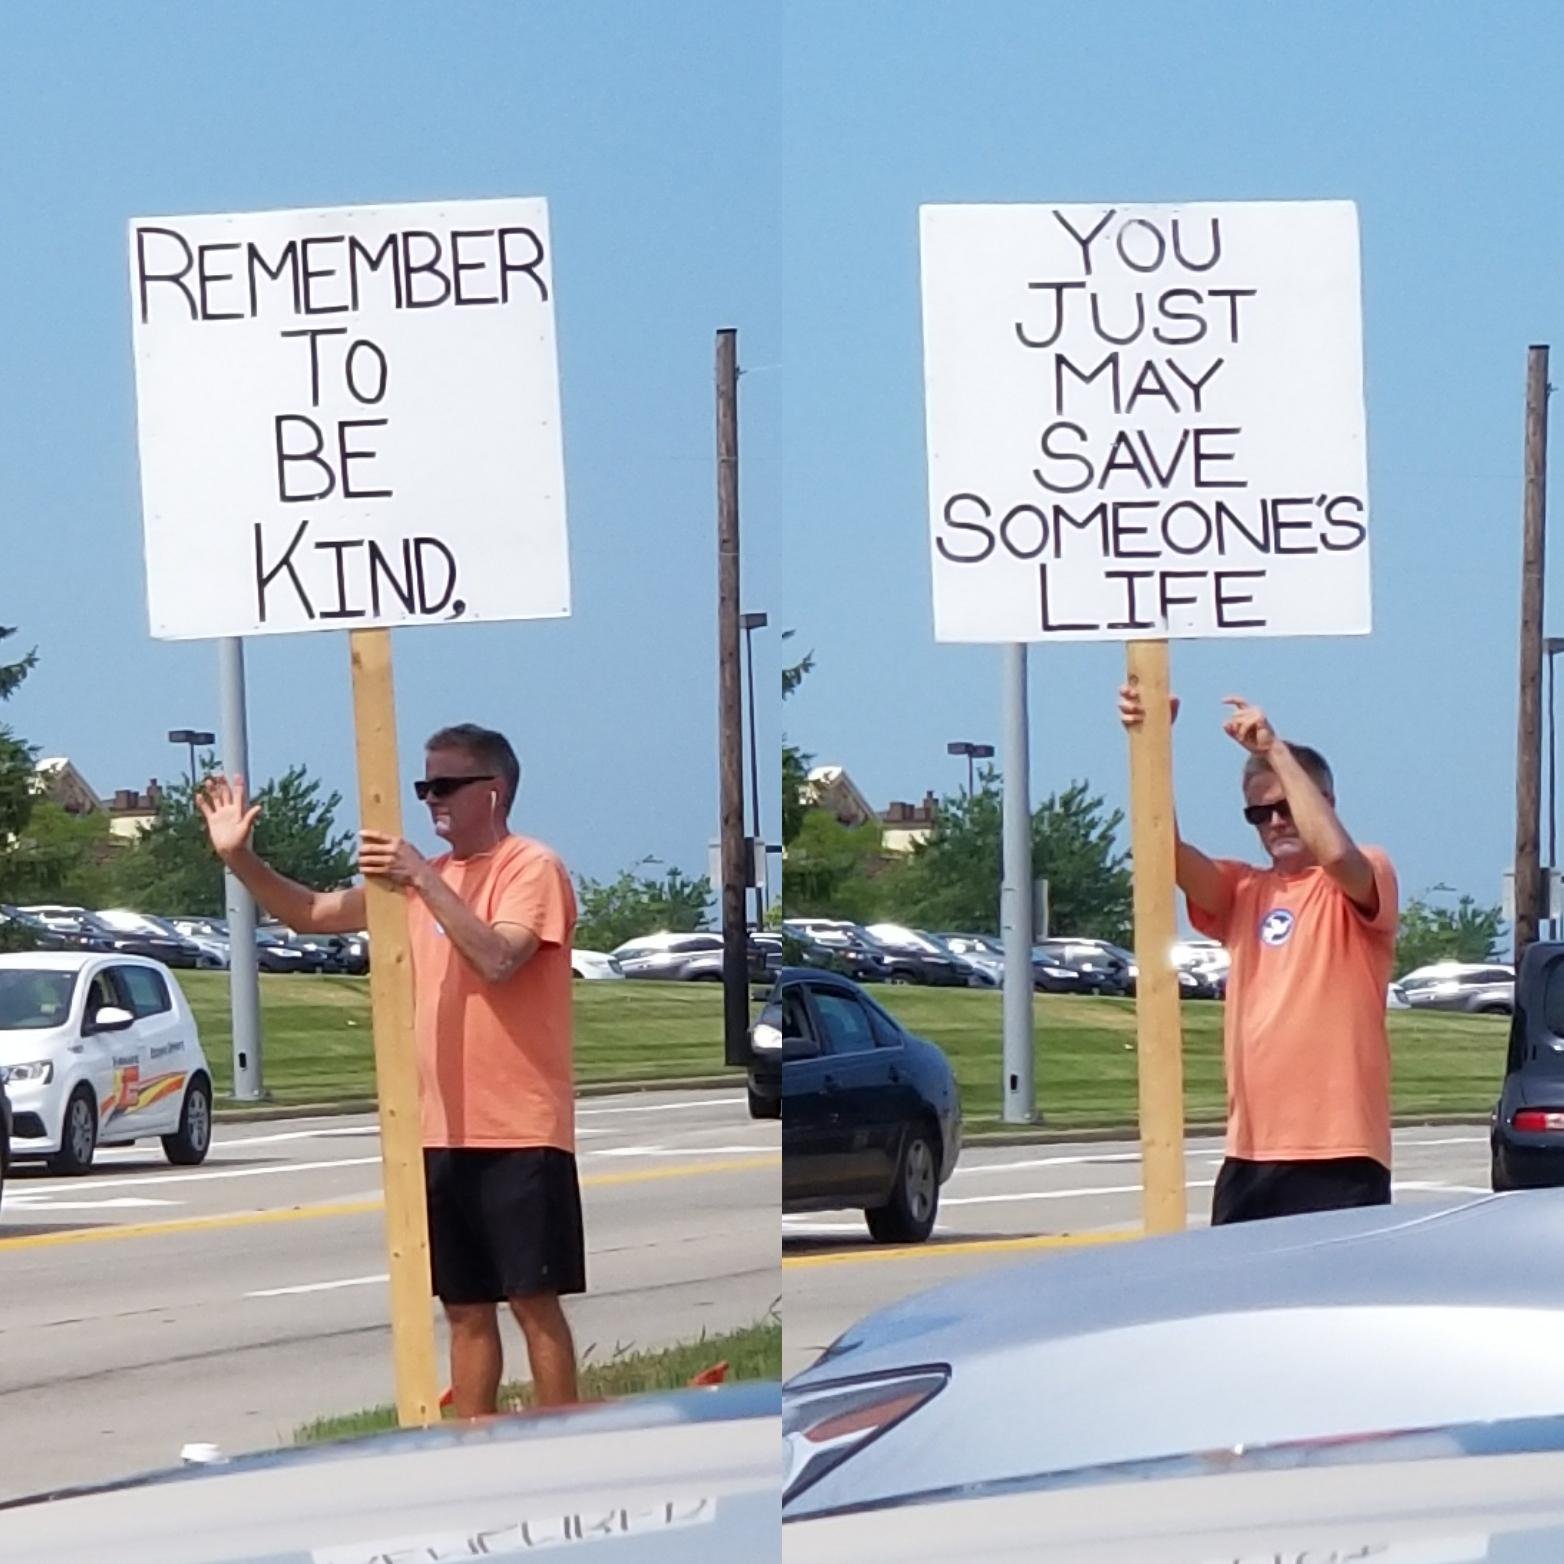 REMEMBER
TO
BE
KIND,
YOU
JUST
MAY
SAVE
SOMEONE'S
LIFE